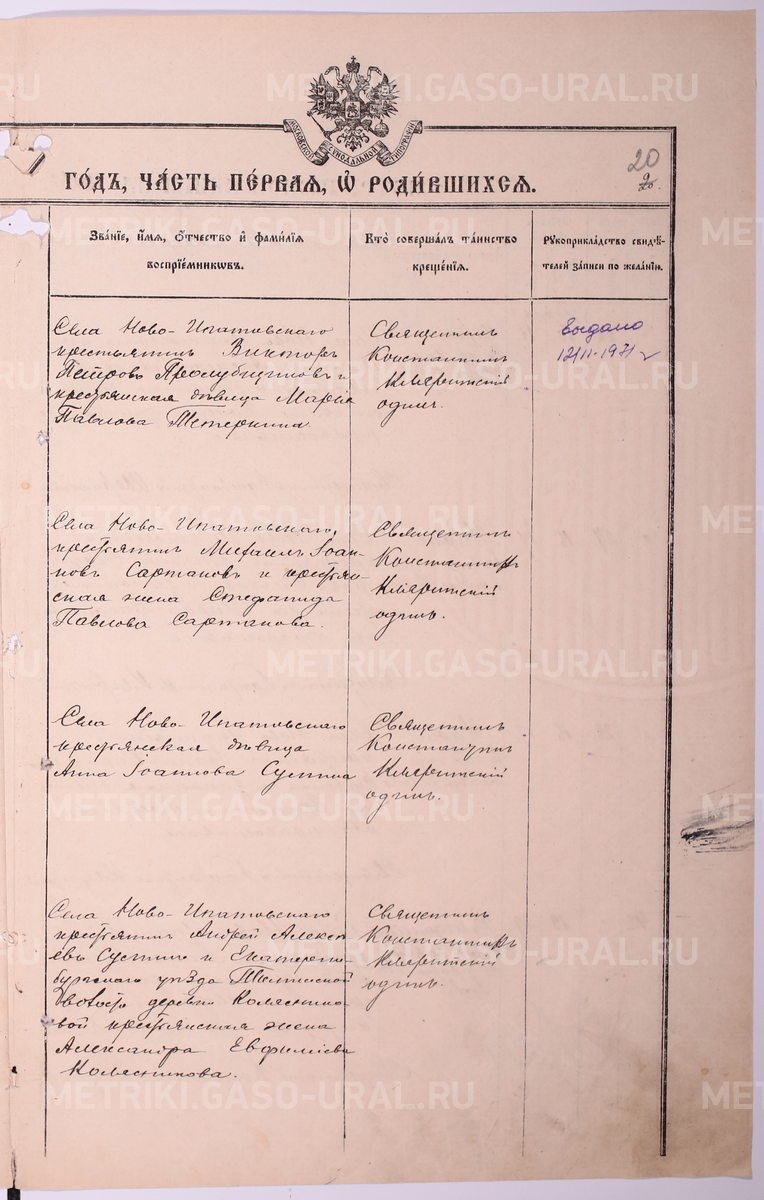 МОСКОВСКОЙ СѴНОДАЛЬНОЙ ТИПОГРАФІИ
20
ГОДЪ, ЧАСТЬ ПЕРВАЯ, Ѡ РОДИВШИХСЯ.
Званіе, имя, отчество и фамилія
воспріемниковъ.
Кто совершалъ таинство
крещенія.
Рукоприкладство свидѣ-
телей записи по желанію.
Села Ново-Ипатовскаго
крестьянинъ Викторъ
Петровъ и
крестьянская дѣвица Марья
Павлова Тетерина
Священникъ
Константинъ
одинъ.
Выдано
12/II-1971
Села Ново-Ипатовскаго,
крестьянинъ Михаилъ Іоан-
новъ Сартаковъ и крестьян-
ская жена Стефанида
Павлова Сартакова.
Священникъ
Константинъ
одинъ.
Села Ново-Ипатовскаго
крестьянская дѣвица
Анна Іоаннова Сустина
Священникъ
Константинъ
одинъ.
Села Ново-Ипатовскаго
крестьянинъ Андрей Алексѣ-
евъ Сустинъ и Екатерин-
бургскаго уѣзда
волости деревни Колясник-
вой крестьянская жена
Александра Евфиміева
Колясникова.
Священникъ
Константинъ
одинъ.
METRIKI.GASO-URAL.RU